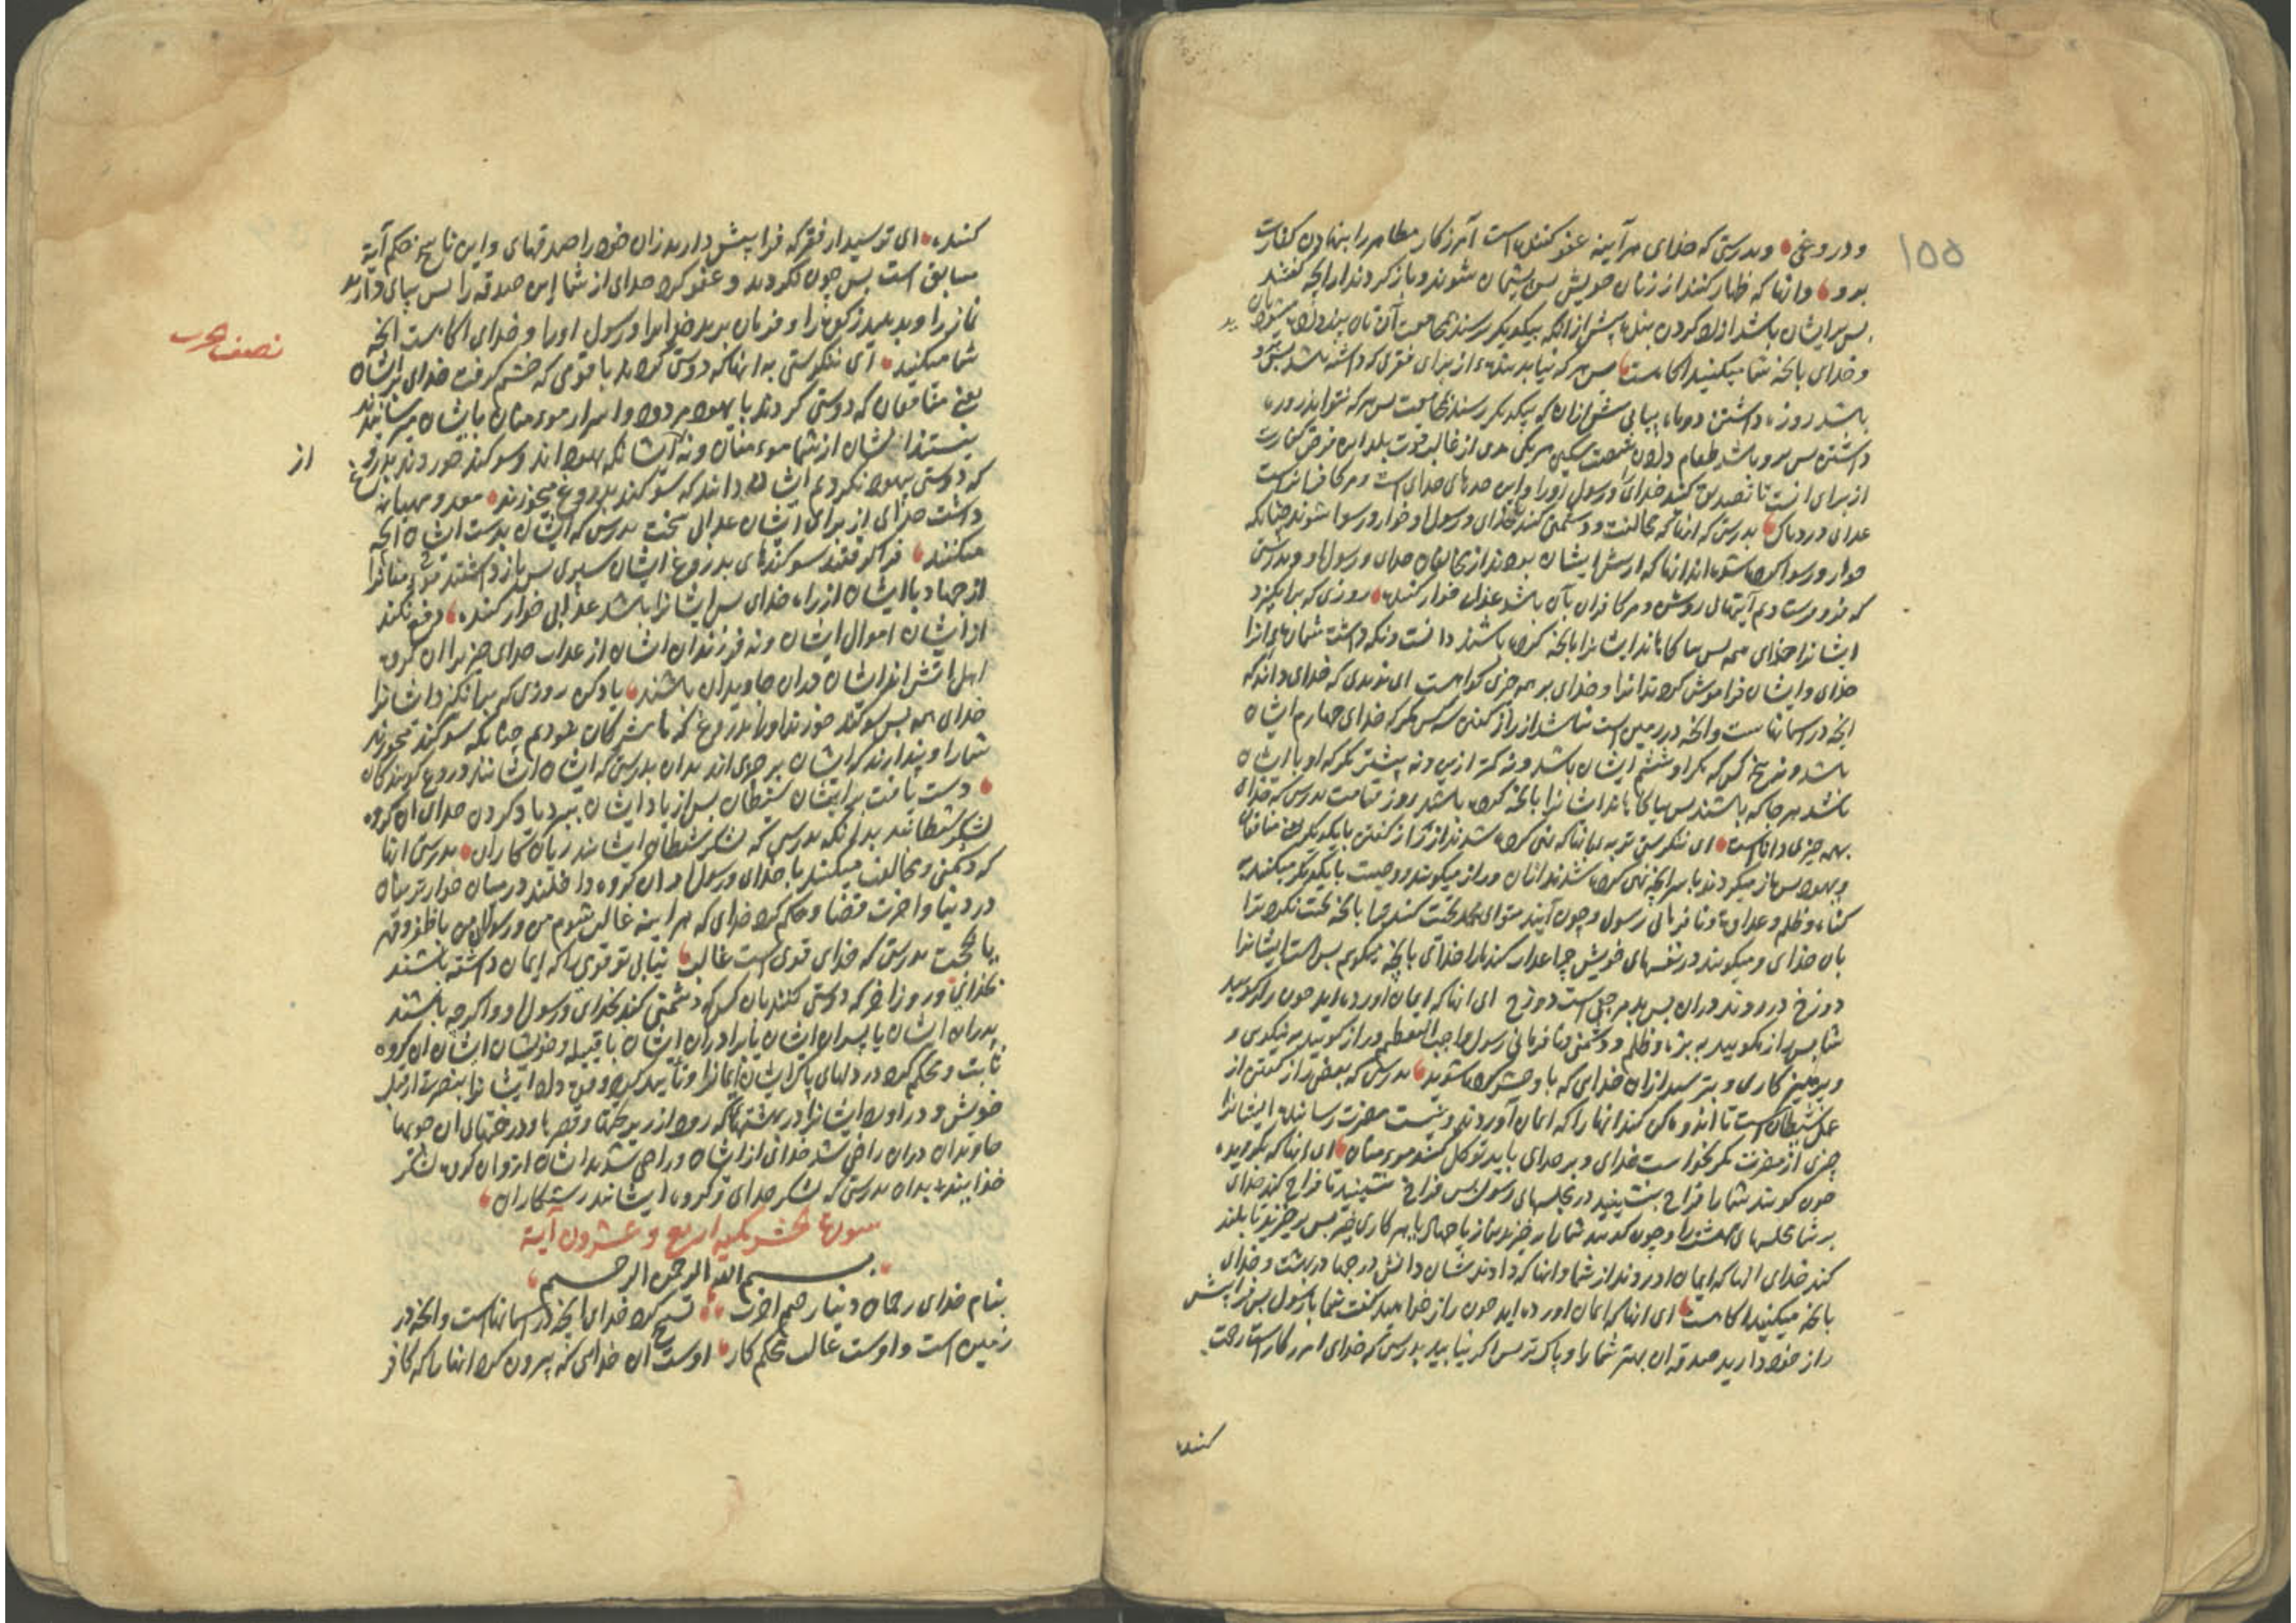 ۱۵۵
و دروغی وبدرستی که خدای هر آینه عفو کننده است آمرزکار مظاهر را بنهادن کفارت
برو وانها که ظهار کنند از زنان خویش پس پشیمان شوند و باز کردند ازانچه کفتند
پس برایشان باشد ازاد کردن بنده پیش از انکه بیکدیکر رسند
و خدای بانچه شما میکنید اکاهست پس هر که نیابد بنده از برای فقری که داشته باشد
باشد روزه داشتن دو ماه پیاپی پیش ازان که بیکدیکر رسند بمجامعت پس هر که نتواند روزه
داشتن پس برو باشد طعام دادن شصت مسکین هر یکی مدی از غالب قوت بلد این فرض کفارت
از برای انست تا تصدیق کنید خدای و رسول او را و این حدهای خدای است و مر کافرانراست
عذابی دردناک بدرستی که انها که مخالفت و دشمنی کنند با خدای و رسول او خوار و رسوا شوند چنانکه
خوار و رسوا کرده شده اند انها که از پیش ایشان بودند از مخالفان خدای و رسول او و بدرستی
که فرو فرستادیم آیتهای روشن و مر کافران بآن باشد عذاب خوار کننده روزی که برانکیزد
ایشانرا خدای همه پس بیاکاهاند ایشانرا بانچه کرده باشند دانست و نکه داشت شمارهای انرا
خدای و ایشان فراموش کرده اند انرا و خدای بر همه چیزی کواهست ای ندیدی که خدای داند که
انچه در اسمانهاست وانچه در زمین است نباشد از راز کفتن سه کس مکر که خدای چهارم ایشان
باشد و نه پنج کس که مکر او ششم ایشان باشد و نه کمتر ازین و نه بیشتر مکر که او با ایشان
باشد هر جا که باشند پس بیاکاهاند ایشانرا بانچه کرده باشند روز قیامت بدرستی که خدای
بهمه چیزی داناست ای ننکرستی تو به انها که نهی کرده شدند از راز کفتن با یکدیکر یعنی منافقان
و یهود پس باز میکردند با سر انچه نهی کرده شدند ازان و راز میکویند و وصیت با یکدیکر میکنند به
کناه و ظلم و عداوت و نافرمانی رسول و چون آیند بتو ای محمد تحیت کنند ترا بانچه تحیت نکرد ترا
بان خدای و میکویند در نفسهای خویش چرا عذاب نکند ما را خدای بانچه میکویم بس است ایشانرا
دوزخ در روند دران پس بد مرجعی است دوزخ ای انها که ایمان اورده اید چون راز کویید
شما پس راز مکویید به بزه و ظلم و دشمنی و نافرمانی رسول واجب التعظیم و راز کویید به نیکوی و
و پرهیز کاری و بترسید ازان خدای که با او حشر کرده شوید بدرستی که بعضی راز کفتن از
عمل شیطان است تا اندوهکین کند انها را که ایمان آوردند و نیست مضرت رساننده ایشانرا
چیزی از مضرت مکر بخواست خدای و بر خدای باید توکل کنند مومنان ای انها که بکرویده
چون کویند شما را فراخ بنشینید در مجلسهای رسول پس فراخ نشینید تا فراخ کند خدای
بر شما مجلسهای بهشت را و چون کویند شما را برخیزید بنماز یا جهاد یا بهر کاری خیر پس برخیزید تا بلند
کند خدای انها که ایمان اوردند از شما وانها که دادند شان دانش درجها در بهشت و خدای
بانچه میکنید اکاهست ای انها که ایمان اورده اید چون راز خواهید کفت شما با رسول پس فرا پیش
راز خود دارید صدقه ان بهتر شما را و پاک تر پس اکر نیابید بدرستی که خدای امرزکار است رحمت
کننده
کننده ای ترسیدید از فقر که فرا پیش دارید زان خود را صدقهای و این ناسخ حکم آیة
سابق است پس چون نکردید و عفو کرد خدای از شما این صدقه را پس بپای دارید
نماز را و بدهید زکوة را و فرمان برید خدایرا و رسول او را و خدای اکاهست انچه
نصف حزب
شما میکنید ای ننکرستی به انها که دوستی کردند با قومی که خشم کرفت خدای بر ایشان
یعنی منافقان که دوستی کردند با یهود مردود و اسرار مومنان با ایشان میرسانیدند
نیستند ایشان از شما مومنان و نه از ایشان که یهوداند و سوکند خوردند بدروغ
از
که دوستی یهود نکردیم ایشان دانند که سوکند بدروغ میخورند معد و مهیا
داشت خدای از برای ایشان عذابی سخت بدرستی که ایشان بدست ایشان انچه
میکنند فرا کرفتند سوکندهای بدروغ ایشان سپری پس باز داشتند
از جهاد با ایشان از راه خدای پس ایشانرا باشد عذابی خوار کننده دفع نکند
از ایشان اموال ایشان و نه فرزندان ایشان از عذاب خدای چیزی ان کروه
اهل اتش اند ایشان دران جاویدان باشند یاد کن روزی که برانکیزد ایشانرا
خدای همه پس سوکند خورند او را بدروغ که ما مشرکان نبودیم چنانکه سوکند میخورند
شما را و پندارند که ایشان بر چیزی اند بدان بدرستی که ایشان ایشانند دروغ کویندکان
دست یافت بر ایشان شیطان پس از یاد ایشان ببرد یاد کردن خدای ان کروه
لشکر شیطانند بدانکه بدرستی که لشکر شیطان ایشانند زیان کاران بدرستی انها
که دشمنی و مخالفت میکنند با خدای و رسول او ان کروه داخلند در میان خوارترینان
در دنیا و اخرت قضا و حکم کرد خدای که هر اینه غالب شوم من و رسولان من با ظفر و قهر
یا بحجت بدرستی که خدای قوی است غالب نیابی تو قومی را که ایمان داشته باشند
بخدای و روز اخر که دوستی کنند بان کس که دشمنی کند بخدای و رسول او و اکر چه باشند
پدران ایشان یا پسران ایشان یا برادران ایشان یا قبیله و خویشان ایشان ان کروه
ثابت و محکم کرد در دلهای پاک ایشان ایمانرا و تایید کرد و قوت داد ایشانرا بنصرت از قبل
خویش و در اورد ایشانرا در بهشتهای که رود از زیر کوشکها و قصرها و درختهای ان جویها
جاویدان دران راضی شد خدای از ایشان و راضی شدند ایشان ازو ان کروه لشکر
خدایند بدان بدرستی که لشکر خدای و کروه ایشانند رستکاران
سورة الحشر مکیه اربع و عشرون آیة
بسم الله الرحمن الرحیم
بنام خدای رحمان دنیا رحیم اخرت تسبیح کرد خدای انچه در اسمانهاست وانچه در
زمین است و اوست غالب محکم کار اوست ان خدای که بیرون کرد انها را که کافر